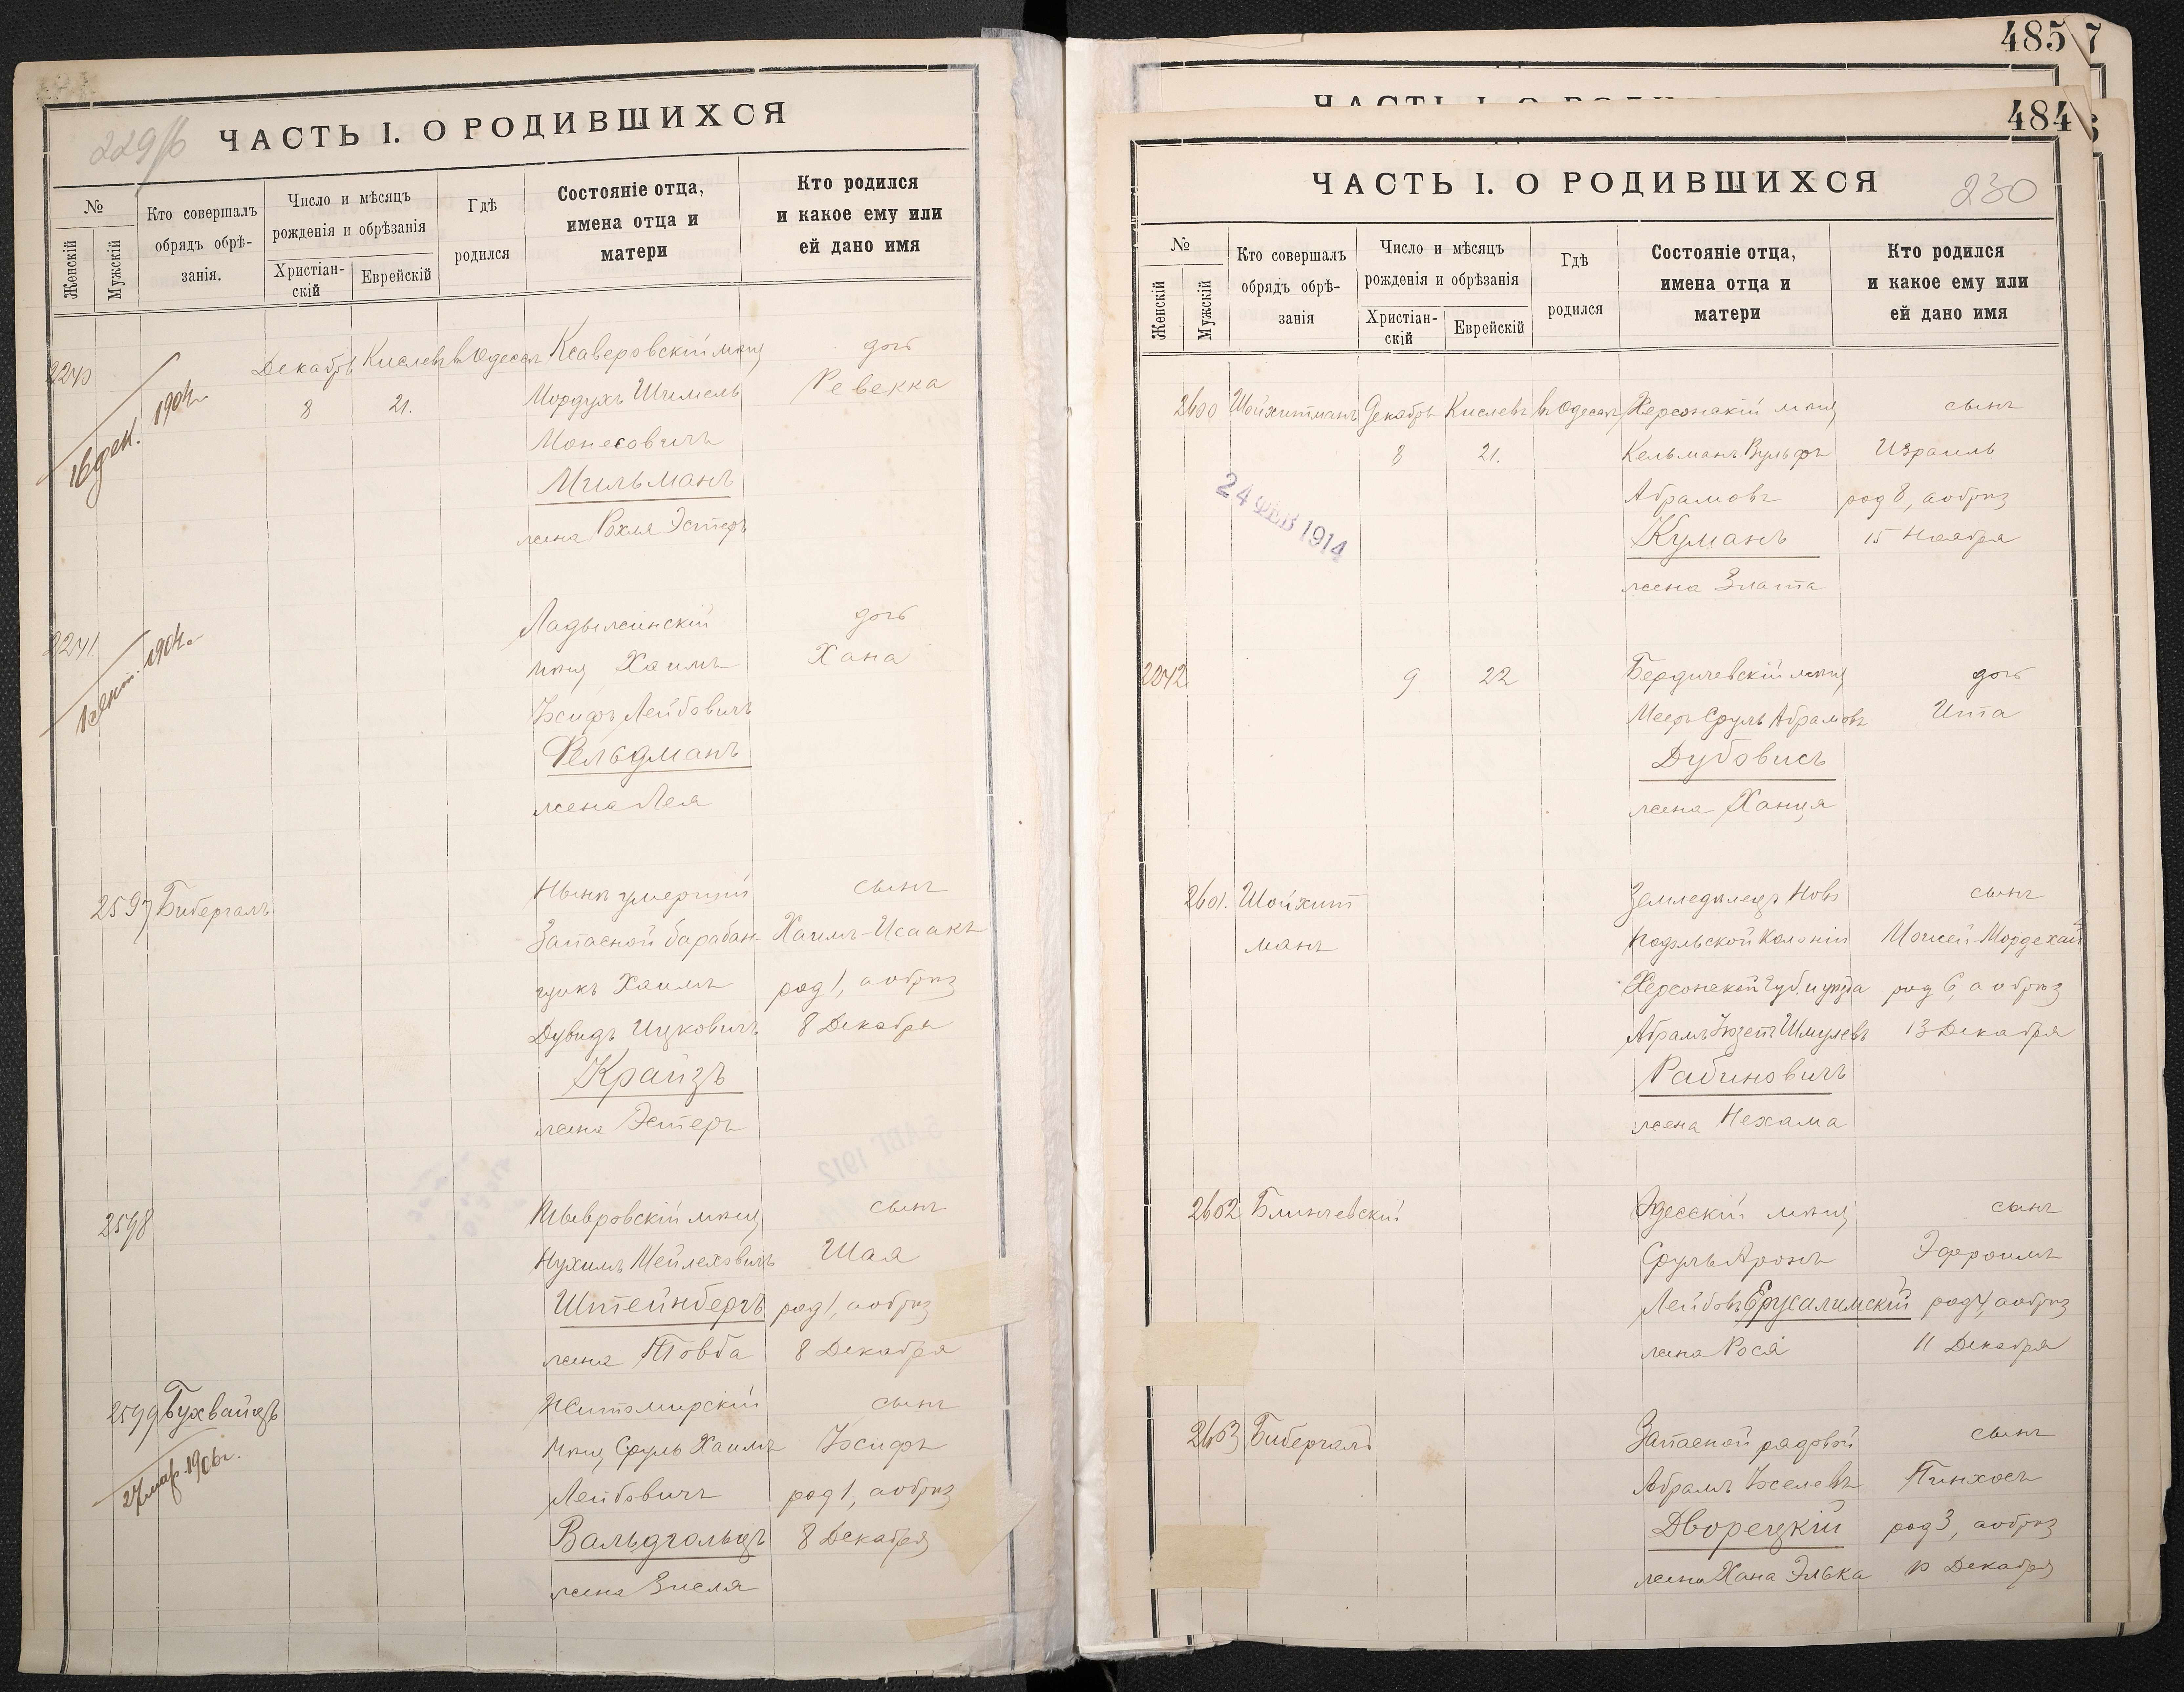 229/б
ЧАСТЬ I. О РОДИВШИХСЯ
№
Женскій
Мужскій
Кто совершалъ обрядъ обрѣ-
занія.
Число и мѣсяцъ
рожденія и обрѣзанія
Христіан-
скій
Еврейскій
Гдѣ
родился
Состояніе отца,
имена отца и
матери
Кто родился
и какое ему или
ей дано имя
2240
Декабрь Кислевъ въ Одессѣ Ксаверовскій мѣщ дочь
16 дек. 1904 г.
8 21. Мордухъ Шимель Ревекка
Монесовичъ
Мильманъ
жена Рохля Эстеръ
2241.
1904 г.
Ладыжинскій дочь
мѣщ Хаимъ Хана
Іосифъ Лейбовичъ
Фельдманъ
жена Лея
2597 Бибергалъ Нынѣ умершій сынъ
Запасной барабан- Хаимъ-Исаакъ
щикъ Хаимъ род 1, а обрѣз
Дувидъ Ицковичъ 8 Декабря
Крайзъ
жена Эстеръ
2598 мѣщ сынъ
Нухимъ Мейлеховичъ Шая
Штейнбергъ род 1, а обрѣз
жена Товба 8 Декабря
2599 Бухвайцъ Житомирскій сынъ
27 мар. 1906 г.
мѣщ Сруль Хаимъ Іосифъ
Лейбовичъ род 1, а обрѣз
Вальдгольцъ 8 Декабря
жена Зисля
485
7
484
ЧАСТЬ I. О РОДИВШИХСЯ
230
№
Женскій
Мужскій
Кто совершалъ
обрядъ обрѣ-
занія
Число и мѣсяцъ
рожденія и обрѣзанія
Христіан-
скій
Еврейскій
Гдѣ
родился
Состояніе отца,
имена отца и
матери
Кто родился
и какое ему или
ей дано имя
2600 Шойхитманъ Декабрь Кислевъ въ Одессѣ Херсонскій мѣщ сынъ
8 21. Кельманъ Вульфъ Израиль
24 ФЕВ 1914
Абрамовъ род 8, а обрѣз
Куманъ 15 Ноября
жена Злата
2242 9 22 Бердичевскій мѣщ дочь
Мееръ Сруль Абрамовъ Ита
Дубовисъ
жена Ханця
2601. Шойхит Земледѣлецъ Ново сынъ
манъ подольской Колоніи Мойсей-Мордехай
Херсонской губ. и уѣзда род 6, а обрѣз
Абрамъ Шмулевъ 13 Декабря
Рабиновичъ
жена Нехама
2602 Блинчевскій Одесскій мѣщ сынъ
Сруль Аронъ Эфроимъ
Лейбовъ Ерусалимскій род 4, а обрѣз
жена Рося 11 Декабря
2603 Бибергалъ Запасной рядовой сынъ
Абрамъ Іоселевъ Пинхосъ
Дворецкій род 3, а обрѣз
жена Хана Элька 10 Декабря